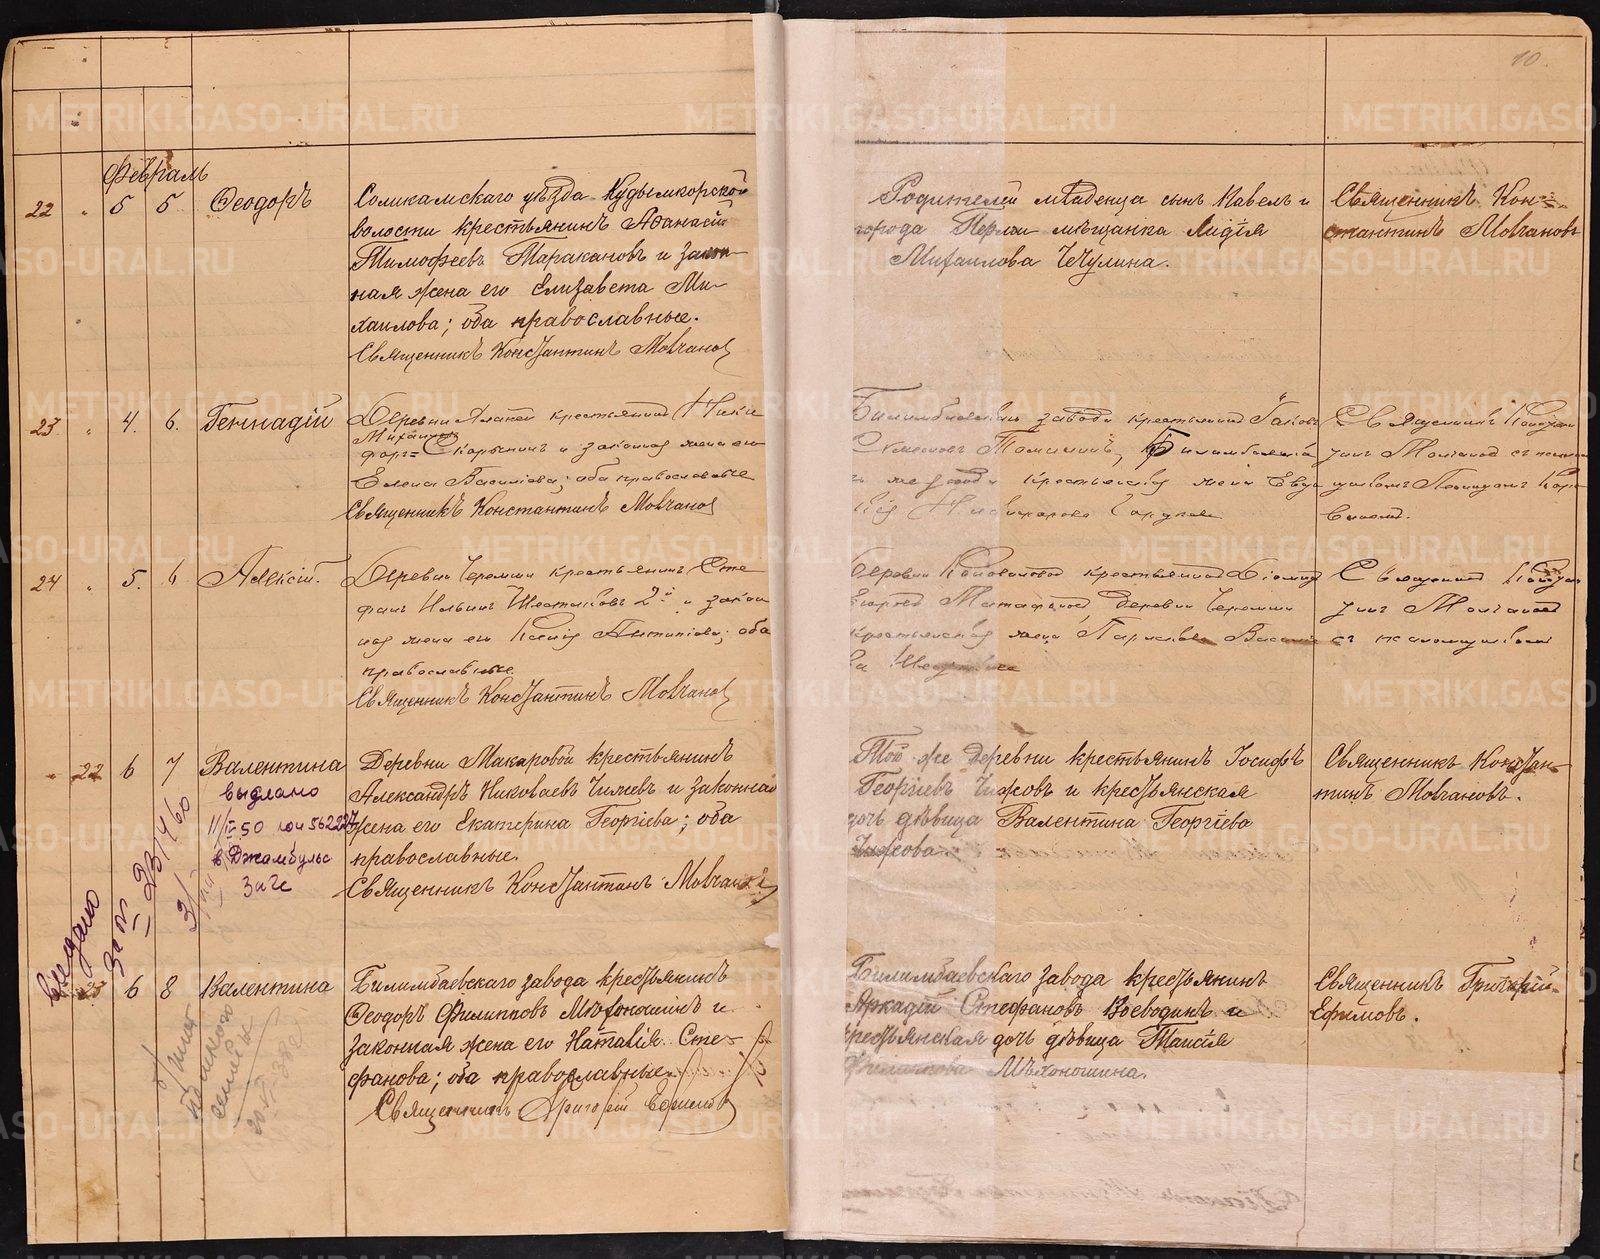 10.
Февраль
22 " 5 5 Ѳеодоръ
Соликамскаго уѣзда Кудымкорской
волости крестьянинъ Аѳанасій
Тимофеевъ Таракановъ и закон-
ная жена его Елизавета Ми-
хаилова; оба православные.
Священникъ Константинъ Мовчанов
Родителей младенца сынъ Павелъ и
города Перми мѣщанка Лидія
Михаилова Чечулина.
Священникъ Кон-
стантинъ Мовчановъ
23. " 4. 6. Геннадій
Деревни крестьянинъ Ники
форъ Скорынинъ и законная жена его
Елена Василіева; оба православные
Священникъ Константинъ Мовчанов
Билимбаевскаго завода крестьянинъ Іаковъ
Билимбаевска
крестьянская жена Евдо
Священникъ Констан
тинъ Молчановъ съ псалом
щикомъ
24 " 5. 6 Алексій.
Деревни Черемши крестьянинъ Сте
фанъ Ильинъ Шестаковъ 2й и закон
ная жена его Ксенія Антипіева; оба
православные
Священникъ Константинъ Мовчанов
Деревни Коноваловой крестьянинъ Діомид
Деревни Черемши
крестьянская жена Василіе
ва
Священникъ Констан
тинъ Молчановъ
съ псаломщикомъ
" 22 6 7 Валентина
Деревни Макаровой крестьянинъ
Александръ Николаевъ Чижевъ и законная
жена его Екатерина Георгіева; оба
православные.
Священникъ Константинъ Мовчанов
Той же деревни крестьянинъ Іосифъ
Георгіевъ Чижовъ и крестьянская
дочь дѣвица Валентина Георгіева
Чижова.
Священникъ Констан-
тинъ Мовчановъ.
выдано
в Джамбульс
загс
выдано
за №
23 6 8 Валентина
Билимбаевскаго завода крестьянинъ
Ѳеодоръ Филипповъ Мѣхоношинъ и
законная жена его Наталія Сте-
фанова; оба православные.
Священникъ Григорій Ефимов
Билимбаевскаго завода крестьянинъ
Аркадій Стефановъ Воеводинъ и
крестьянская дочь дѣвица Таисія
Филиппова Мѣхоношина.
Священникъ Григорій
Ефимовъ.
METRIKI.GASO-URAL.RU